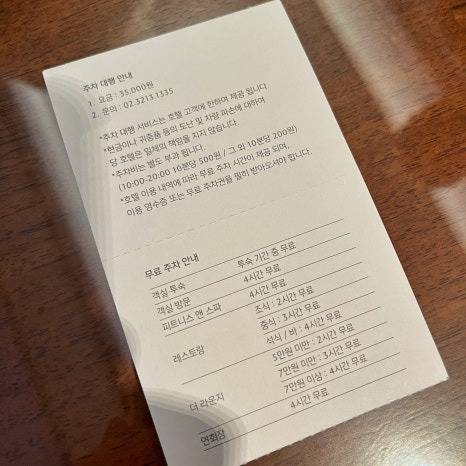 주차 대행 안내
1. 요금 : 35,000원
2. 문의 : 02.3213.1335
*주차 대행 서비스는 호텔 고객에 한하여 제공 됩니다.
*현금이나 귀중품 등의 도난 및 차량 파손에 대하여
당 호텔은 일체의 책임을 지지 않습니다.
*주차비는 별도 부과 됩니다.
(10:00-20:00 10분당 500원 / 그 외 10분당 200원)
*호텔 이용 내역에 따라 무료 주차 시간이 제공 되며,
이용 영수증 또는 무료 주차권을 필히 받아오셔야 합니다.
무료 주차 안내
객실 투숙 투숙 기간 중 무료
객실 방문 4시간 무료
피트니스 앤 스파 4시간 무료
레스토랑 조식 : 2시간 무료
중식 : 3시간 무료
석식 / 바 : 4시간 무료
더 라운지 5만원 미만 : 2시간 무료
7만원 미만 : 3시간 무료
7만원 이상 : 4시간 무료
연회장 4시간 무료